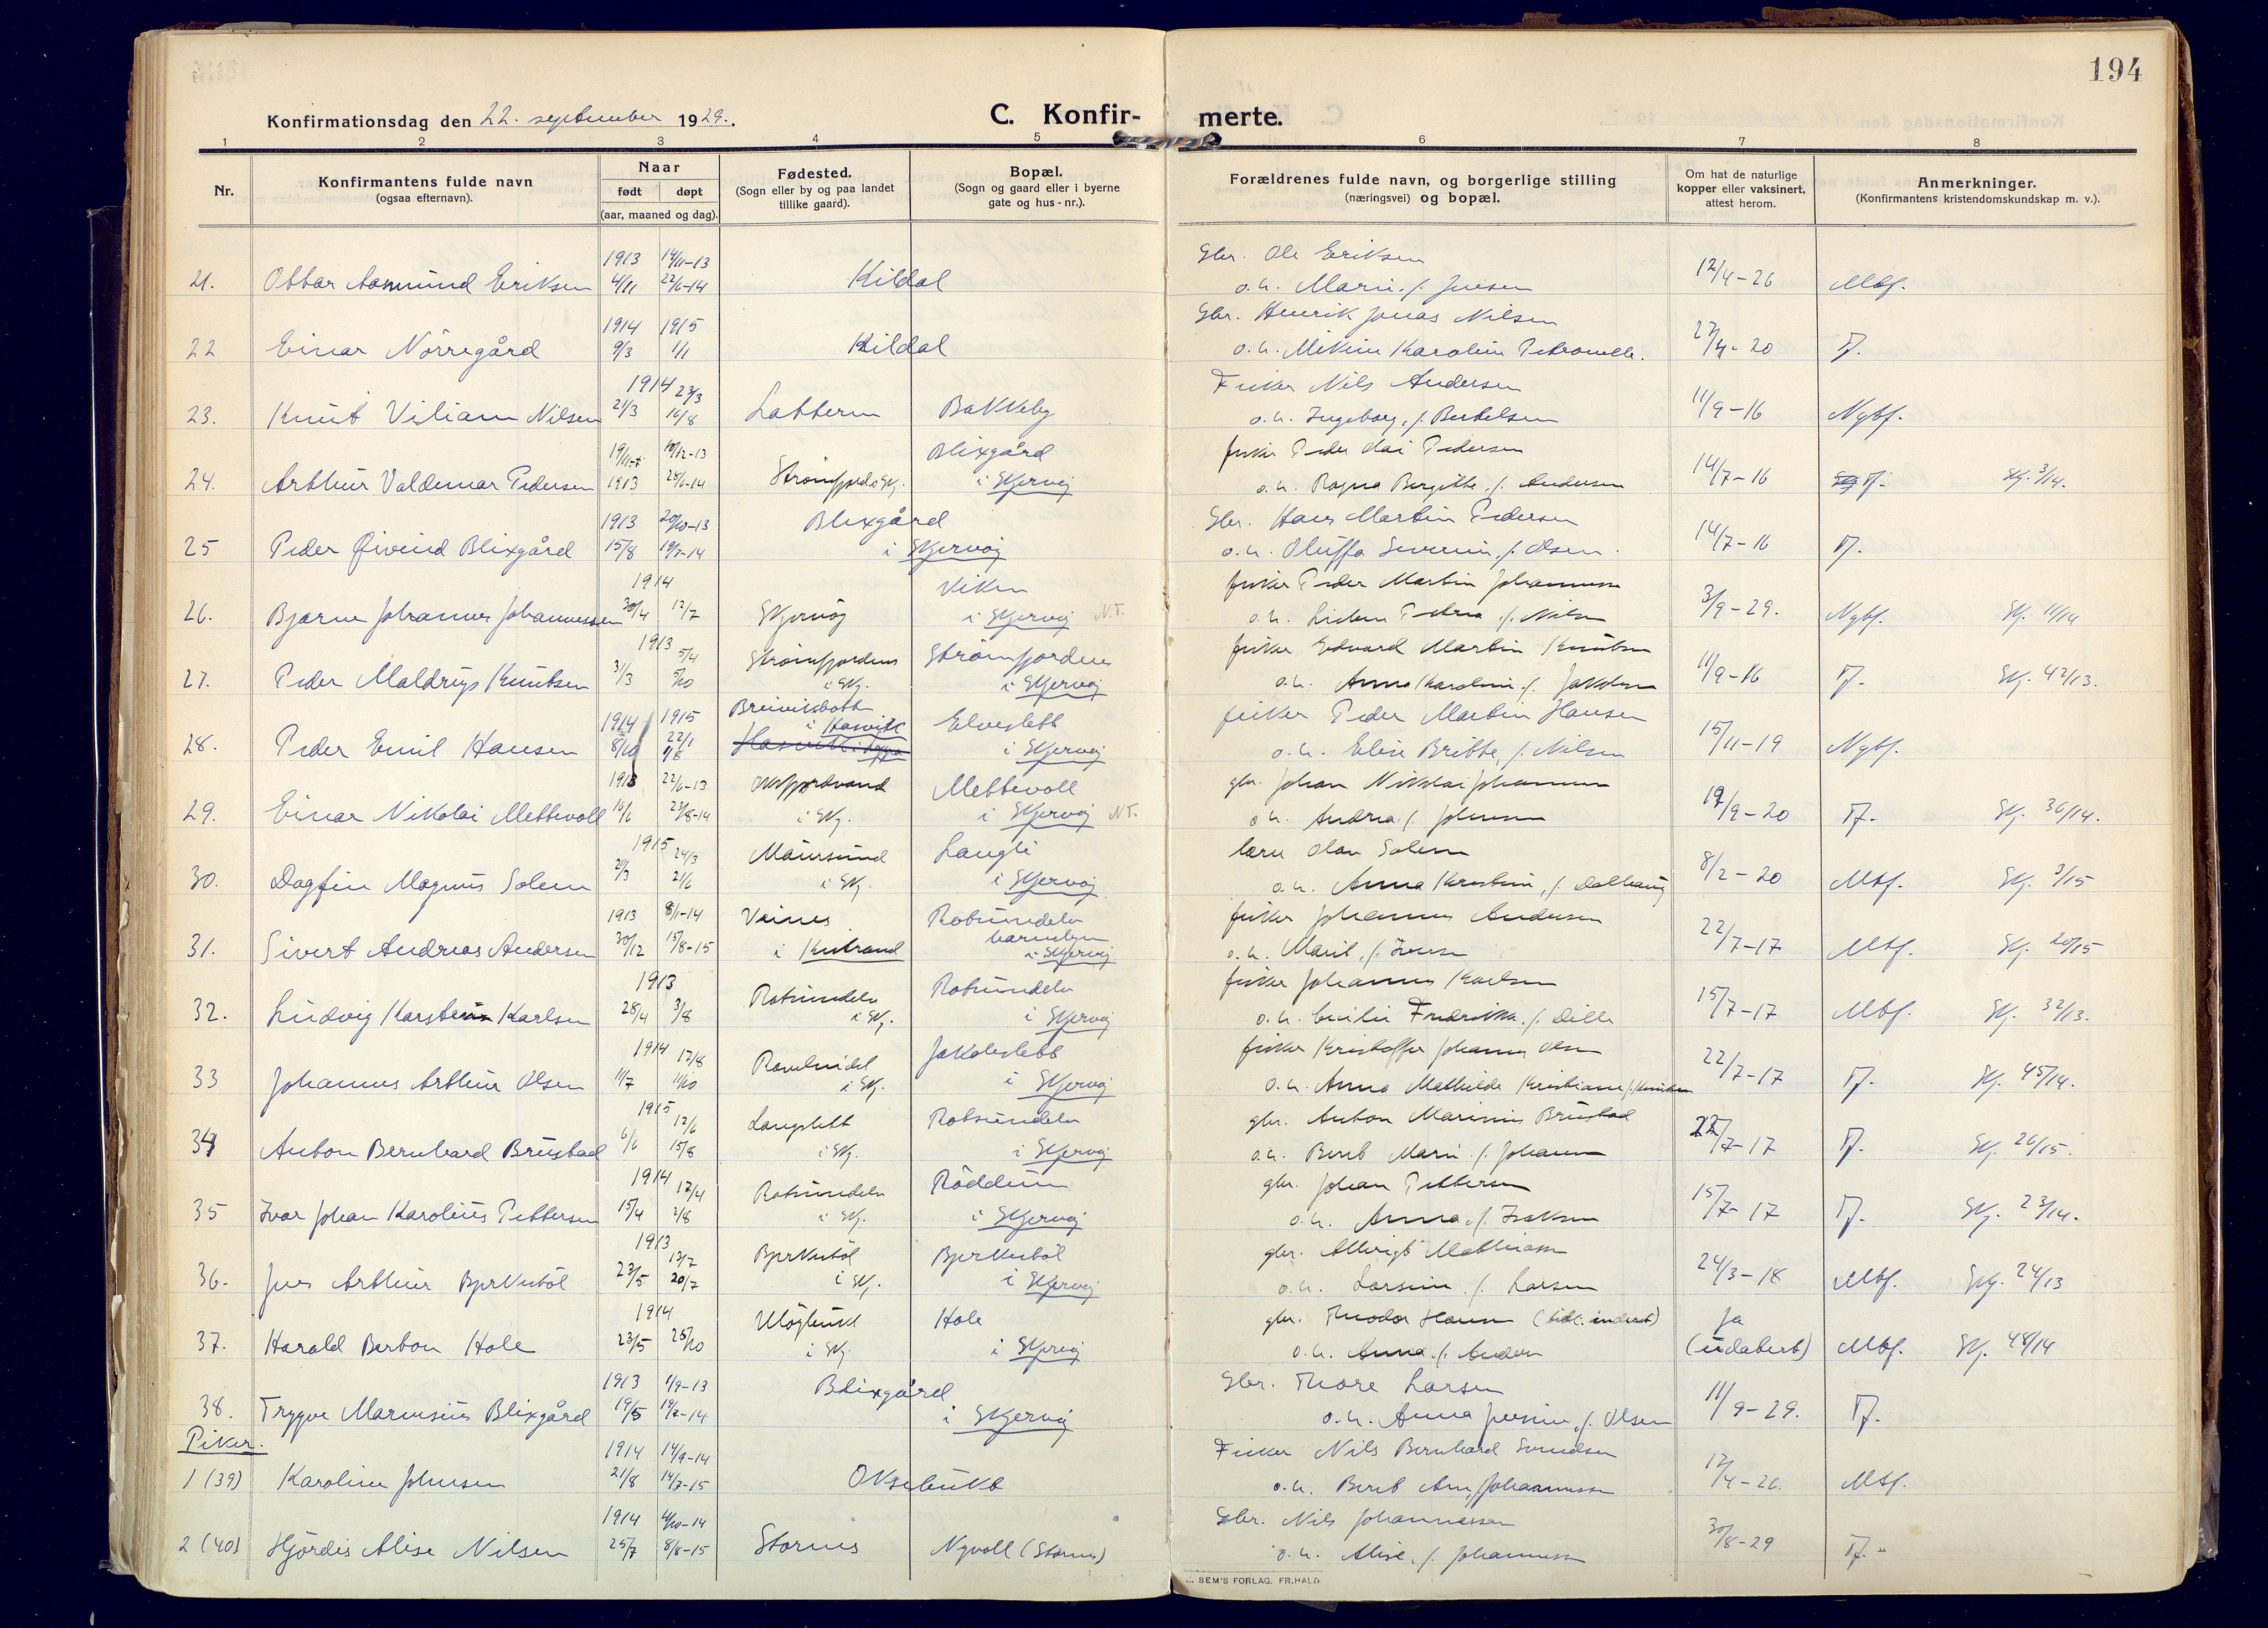 194
Konfirmationsdag den 22. september 1929.
C. Konfir-
merte.
1 2 3 4 5 6 7 8
Nr.
Konfirmantens fulde navn
(ogsaa efternavn).
Naar
født døpt
(aar, maaned og dag).
Fødested.
(Sogn eller by og paa landet
tillike gaard).
Bopæl.
(Sogn og gaard eller i byerne
gate og hus-nr.).
Forældrenes fulde navn, og borgerlige stilling
(næringsvei) og bopæl.
Om hat de naturlige
kopper eller vaksinert,
attest herom.
Anmerkninger.
(Konfirmantens kristendomskundskap m. v.).
1913 14/11-13 Gbr. Ole Eriksen
21. Ottar Aasmund Eriksen 4/11 22/6-14 Kildal o.h. Marie f. Jensen 12/4-26 Mtf.
1914 1915 Gbr. Henrik Jonas Nilsen
22 Einar Nörregård 9/3 1/1 Kildal o.h. Karoline Petronelle. 27/4-20 Tf.
1914 23/3 Fisker Nils Andersen
23. Knut Viliam Nilsen 21/3 16/8 Latteren Bakkeby o.h. Ingeborg, f. Bertelsen 11/9-16 Ngtf.
19/11 10/12-13 Blixgård fisker Peder Pedersen
24. Arthur Valdemar Pedersen 1913 28/6-14 Skj. i Skjervøy o.h. Ragna Birgitte, f. Andersen 14/7-16 Tf. Skj. 3/14.
1913 20/10-13 Blixgård Gbr. Hans Martin Pedersen
25 Peder Øivind Blixgård 15/8 19/7-14 i Skjervøy o.h. Oluffa f. Olsen. 14/7-16 Tf.
1914 Viken fisker Peder Martin Johannessen
26. Bjarne Johannes Johannessen 30/4 12/7 Skjervøy i Skjervøy N.T. o.h. f. Nilsen 3/9-29. Ngtf. Skj. 11/14
1913 5/4 Strömfjorden Strömfjorden fisker Edvard Martin Knutsen
27. Peder Maldrup Knutsen 31/3 5/10 i Skj. i Skjervøy o.h. Anna Karoline f. Jakobsen 11/9-16 Tf. Skj. 42/13.
1914 1915 Breivikbott i Hasvik Elveslett fisker Peder Martin Hansen
28. Peder Emil Hansen 8/10 22/1 1/8 i Skjervøy o.h. Elise Britte, f. Nilsen 15/11-19 Ngtf.
1913 22/6-13 Oksfjordvand Mettevoll gbr. Johan Nikolai Johannesen
29. Einar Nikolai Mettevoll 16/6 23/8-14 i Skj. i Skjervøy N.T. o.h. Andrea f. Johnsen 19/9-20 Tf. Skj. 36/14.
1915 24/3 Maursund Langli lærer Olav Solem
30. Dagfin Magnus Solem 20/3 2/6 i Skj. i Skjervøy o.h. Anna Kirstine, f. Dalhaug 8/2-20 Mtf. Skj. 3/15
1913 8/1-14 Veines Rotsundelv fisker Johannes Andersen
31. Sivert Andreas Andersen 30/12 15/8-15 i Kistrand i Skjervøy o.h. Marit, f. Iversen 22/7-17 Mtf. Skj. 20/15
1913 Rotsundelv Rotsundelv fisker Johannes Karlsen
32. Ludvig Karsten Karlsen 28/4 3/8 i Skj. i Skjervøy o.h. Cecilie Fredrikke f. Dille 15/7-17 Mtf. Skj. 32/13.
1914 12/8 Jakobslett fisker Kristoffer Johannes Olsen
33 Johannes Arthur Olsen 11/7 11/10 i Skj. i Skjervøy o.h. Anna Mathilde Kristiane f. Knutsen 22/7-17 Tf. Skj. 45/14.
1915 12/6 Langslett Rotsundelv gbr. Anton Marinius Brustad
34 Anton Bernhard Brustad 6/6 15/8 i Skj. i Skjervøy o.h. Berit Marie f. Johansen 22/7-17 Tf. Skj. 26/15.
1914 12/4 Rotsundelv Röddum gbr. Johan Pettersen
35 Ivar Johan Karolius Pettersen 15/4 2/8 i Skj. i Skjervøy o.h. Anna, f. Isaksen 15/7-17 Tf. Skj. 23/14.
1913 13/7 Bjørkeböl Bjørkeböl gbr. Albrigt Mathiassen
36. Jens Arthur Bjørkeböl 23/5 20/7 i Skj. i Skjervøy o.h. Larsine f. Larsen 24/3-18 Mtf. Skj. 24/13
1914 Hole gbr. Theodor Hansen Ja
37. Harald Berton Hole 23/5 25/10 i Skj i Skjervøy o.h. Anna f. Andersen (udatert) Mtf. Skj. 48/14
1913 1/9-13 Blixgård Gbr. Thore Larsen
38. Trygve Marensius Blixgård 19/5 19/7-14 i Skjervøy o.h. Anna Jensine, f. Olsen 11/9-29. Tf.
Piker.
1914 14/9-14 Fisker Nils Bernhard Svendsen
1 (39) Karoline Johnsen 21/8 14/7-15 Oksebukt o.h. Berit Johannessen 12/4-26. Mtf.
1914 4/10-14 Gbr. Nils Johannessen
2 (40) Hjördis Alise Nilsen 25/7 8/8-15 Stornes Nyvoll (Stornes) o.h. Alise, f. Johannessen 30/8-29 Tf.
SEM'S FORLAG, FR.HALD